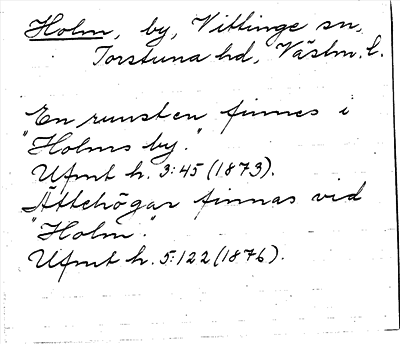 Holm, by, Vittinge sn,
Torstuna hd, Västm. l.
En runsten finnes i
"Holms by."
Ufmt h. 3:45 (1873).
Ättehögar finnas vid
"Holm".
Ufmt h. 5:122 (1876).